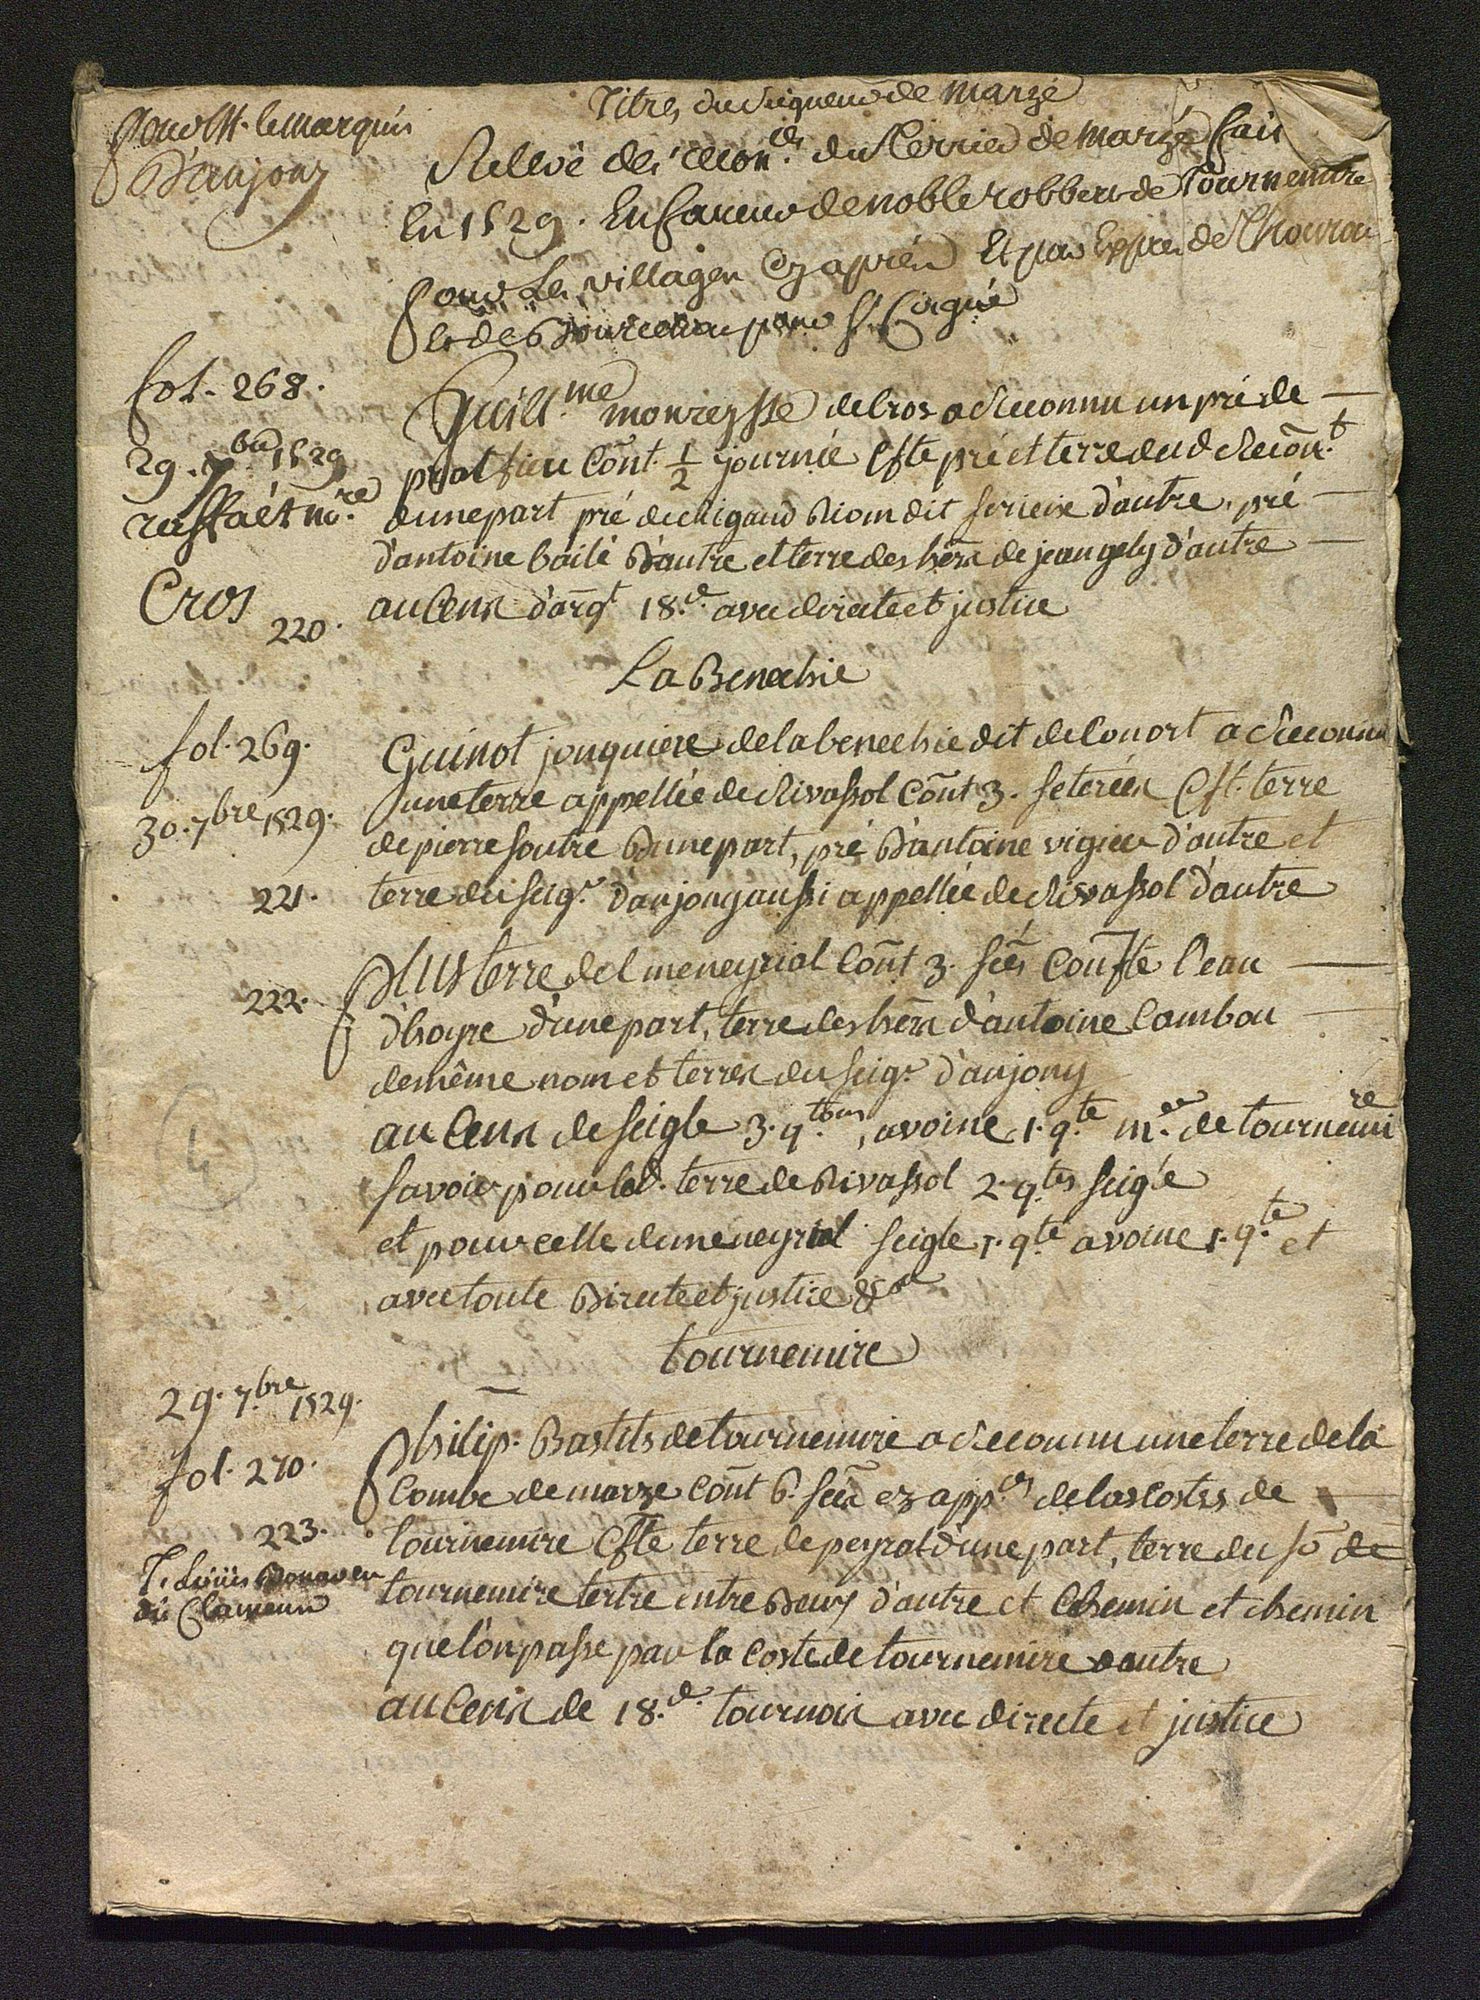 Titres du Seigneur de Marzé
Pour M. le marquis
D'anjony
Rellevé des recon.ces du Terrier de Marzé fait
En 1529. En faveur de noble robbert de Tournemire
pour Les villages Cy après Et par Exprés de
et de pour St. Cirgue
fol. 268.
29. 7.bre 1529
ruffaét no.re
Cros
220.
Guill.me monreysse de Cros a Reconnu un pré de
prat Cont. 1/2 journée Cfte pré et terre dud. Recon.t
d'une part pré de Rigaud Riom dit d'autre, pré
d'antoine baile D'autre et terre des hers de jean gely d'autre
au Cens d'argt 18.d. avec directe et justice
La Benechie
fol. 269.
30. 7bre 1529.
221.
Guinot jonquiere de la benechie dit de Conort a Reconnu
une terre appellée de Rivassol Cont 3. seterées Cft. terre
de pierre soutre D'une part, pré D'antoine vigier d'autre et
terre du seig.r d'anjony aussi appellée de Rivassol d'autre
222.
Plus terre del meneyrial Cont 3. sees Confte l'eau
d'hoyre d'une part, terre des hers d'antoine Cambou
de même nom et terres du seig.r d'anjony
au Cens de seigle 3. q.tons, avoine 1. q.te m.re de tournemire
savoir pour lad. terre de Rivassol 2 q.tes seigle
et pour celle du meneyrial seigle 1. qte avoine 1. q.te et
avec toute Directe et justice &ca
tournemire
29. 7.bre 1529.
fol. 270.
223.
Philip. Bastits de tournemire a Reconnu une terre de la
Combe de marze Cont 6. sees ez app.ces de las Costes de
tournemire Cfte terre de peyrat d'une part, terre du sr de
tournemire tertre entre Deux d'autre et Chemin et chemin
que l'on passe par la Coste de tournemire d'autre
au Cens de 18.d. tournois avec directe et justice
4